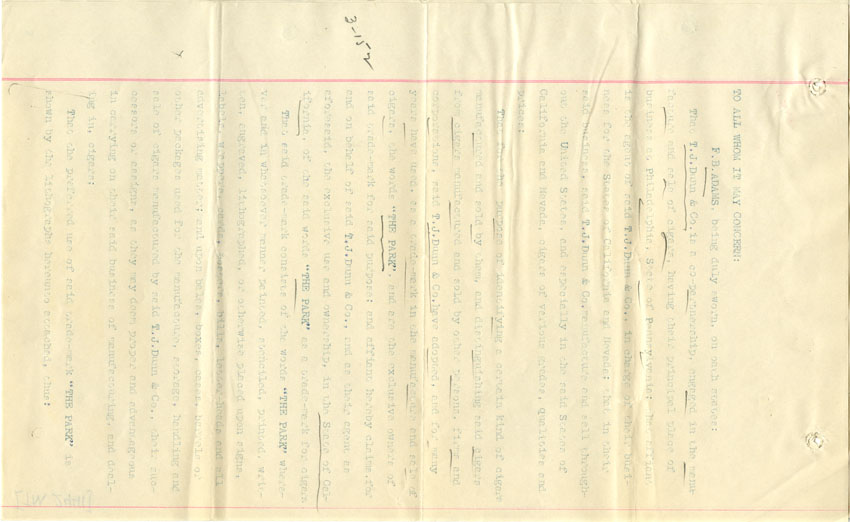 3-152
TO ALL WHOM IT MAY CONCERN:
F.B.ADAMS, being duly sworn, on oath states:
That T.J.Dunn & Co.is a co-partnership, engaged in the manu-
facture and sale of cigars, having their principal place of
business at Philadelphia, State of Pennsylvania; that affiant
is the agent of said T.J.Dunn & Co., in charge of their busi-
ness for the States of California and Nevada; that in their
said business, said T.J.Dunn & Co.manufacture and sell through-
out the United States, and especially in the said States of
California and Nevada, cigars of various grades, qualities and
prices:
That for the purpose of identifying a certain kind of cigars
manufactured and sold by them, and distinguishing said cigars
from cigars manufactured and sold by other persons, firms and
corporations, said T.J.Dunn & Co.have adopted, and for many
years have used, as a trade-mark in the manufacture and sale of
cigars, the words "THE PARK", and are the exclusive owners of
said trade-mark for said purpose; and affiant hereby claims,for
and on behalf of said T.J.Dunn & Co., and as their agent as
aforesaid, the exclusive use and ownership, in the State of Cal-
ifornia, of the said words "THE PARK" as a trade-mark for cigars:
That said trade-mark consists of the words "THE PARK" where-
ver and in whatsoever manner painted, stenciled, printed, writ-
ten, engraved, lithographed, or otherwise placed upon signs,
labels, wrappers, cards, banners, bills, letter-heads and all
advertising matter; and upon bales, boxes, cases, barrels or
other packages used for the manufacture, storage, handling and
sale of cigars manufactured by said T.J.Dunn & Co., their suc-
cessors or assigns, as they may deem proper and advantageous
in carrying on their said business of manufacturing, and deal-
ing in, cigars:
That the preferred use of said trade-mark "THE PARK" is
shown by the lithographs hereunto attached, thus: